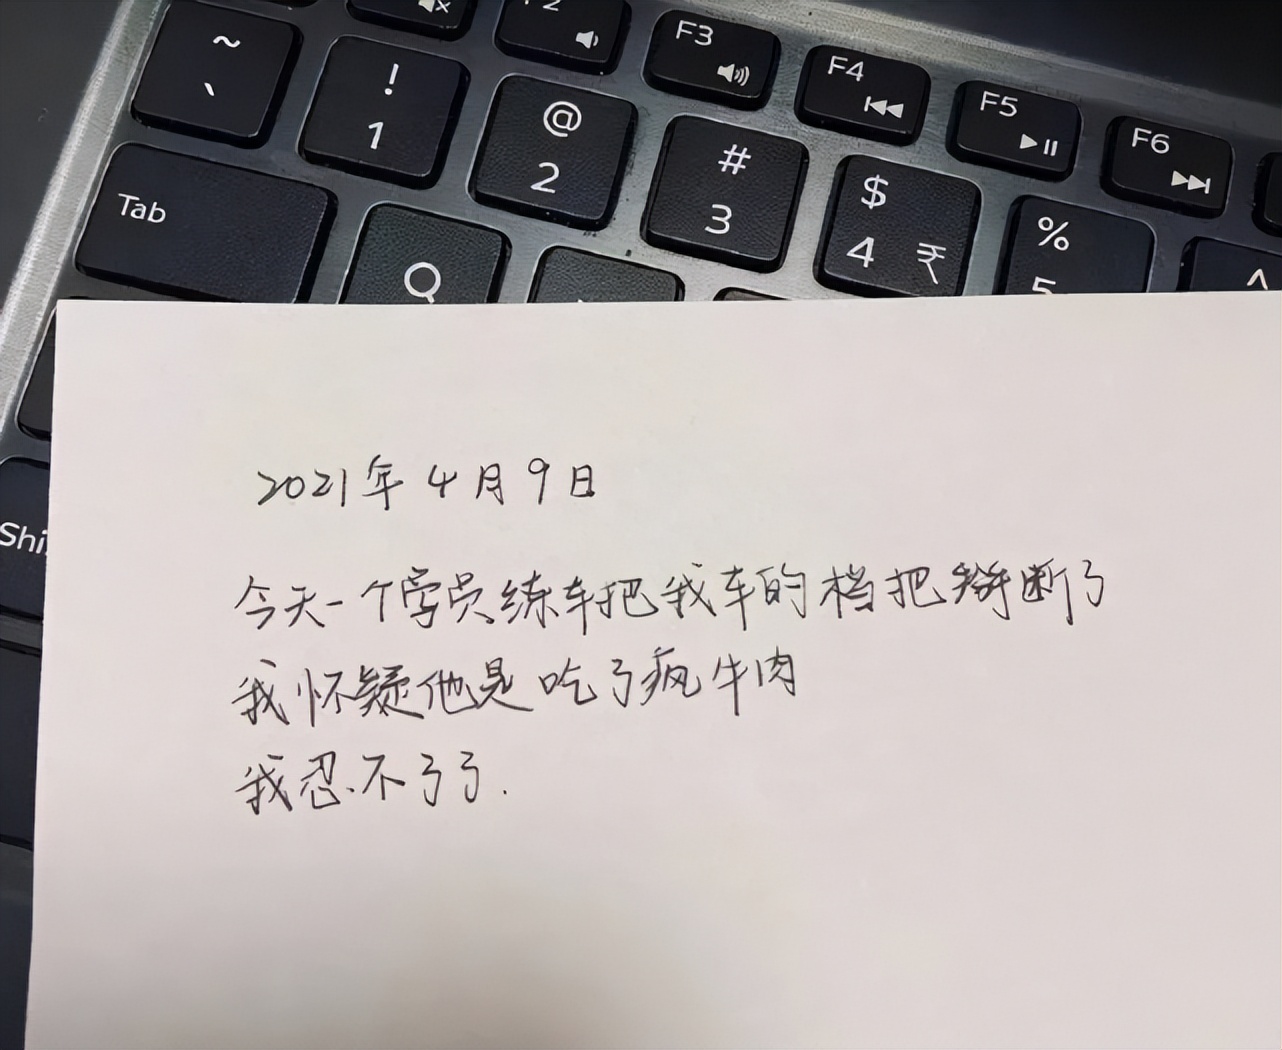 F2
F3
F4
F5
F6
~
`
!
1
@
2
#
3
$
4 ₹
%
5
^
Tab
Q
Shi
2021年4月9日
今天一个学员练车把我车的档把掰断了
我怀疑他是吃了疯牛肉
我忍不了了.